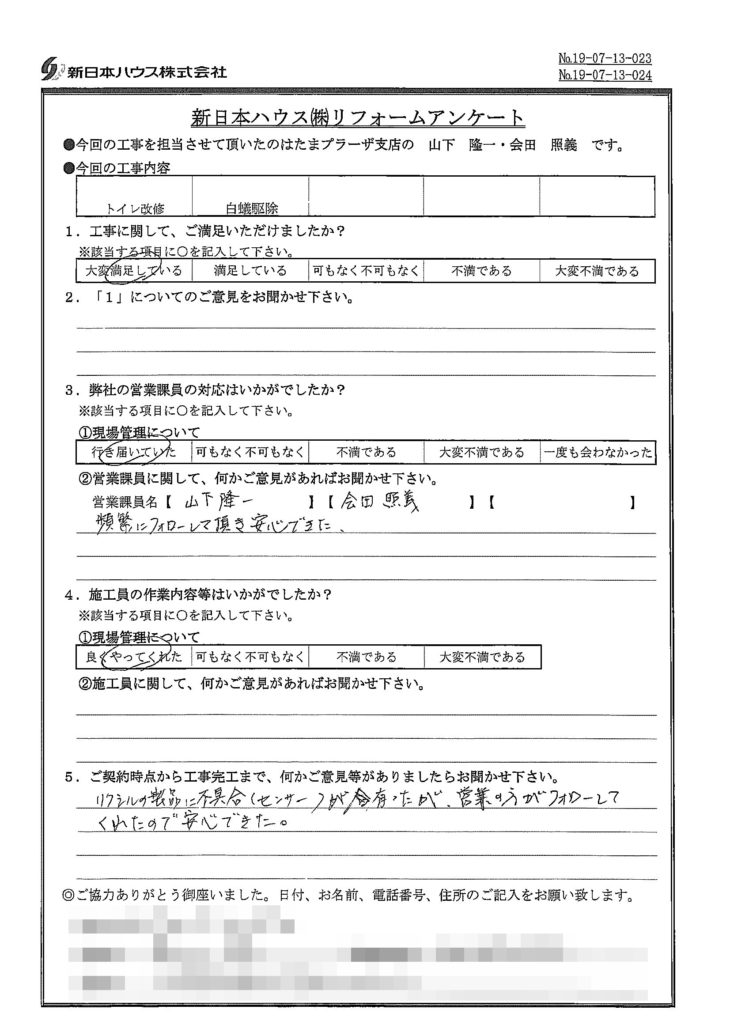 新日本ハウス株式会社
№19-07-13-023
№19-07-13-024
新日本ハウス㈱リフォームアンケート
●今回の工事を担当させて頂いたのはたまプラーザ支店の 山下 隆一・会田 照義 です。
●今回の工事内容
トイレ改修 白蟻駆除
1．工事に関して、ご満足いただけましたか？
※該当する項目に○を記入して下さい。
大変満足している 満足している 可もなく不可もなく 不満である 大変不満である
2．「1」についてのご意見をお聞かせ下さい。
3．弊社の営業課員の対応はいかがでしたか？
※該当する項目に○を記入して下さい。
①現場管理について
行き届いていた 可もなく不可もなく 不満である 大変不満である 一度も会わなかった
②営業課員に関して、何かご意見があればお聞かせ下さい。
営業課員名【 山下隆一 】【 会田 照義 】【 】
頻繁にフォローして頂き安心できた、
4．施工員の作業内容等はいかがでしたか？
※該当する項目に○を記入して下さい。
①現場管理について
良くやってくれた 可もなく不可もなく 不満である 大変不満である
②施工員に関して、何かご意見があればお聞かせ下さい。
5．ご契約時点から工事完工まで、何かご意見等がありましたらお聞かせ下さい。
リクシルの製品に不具合（センサー）が有ったが、営業の方がフォローして
くれたので安心できた。
◎ご協力ありがとう御座いました。日付、お名前、電話番号、住所のご記入をお願い致します。